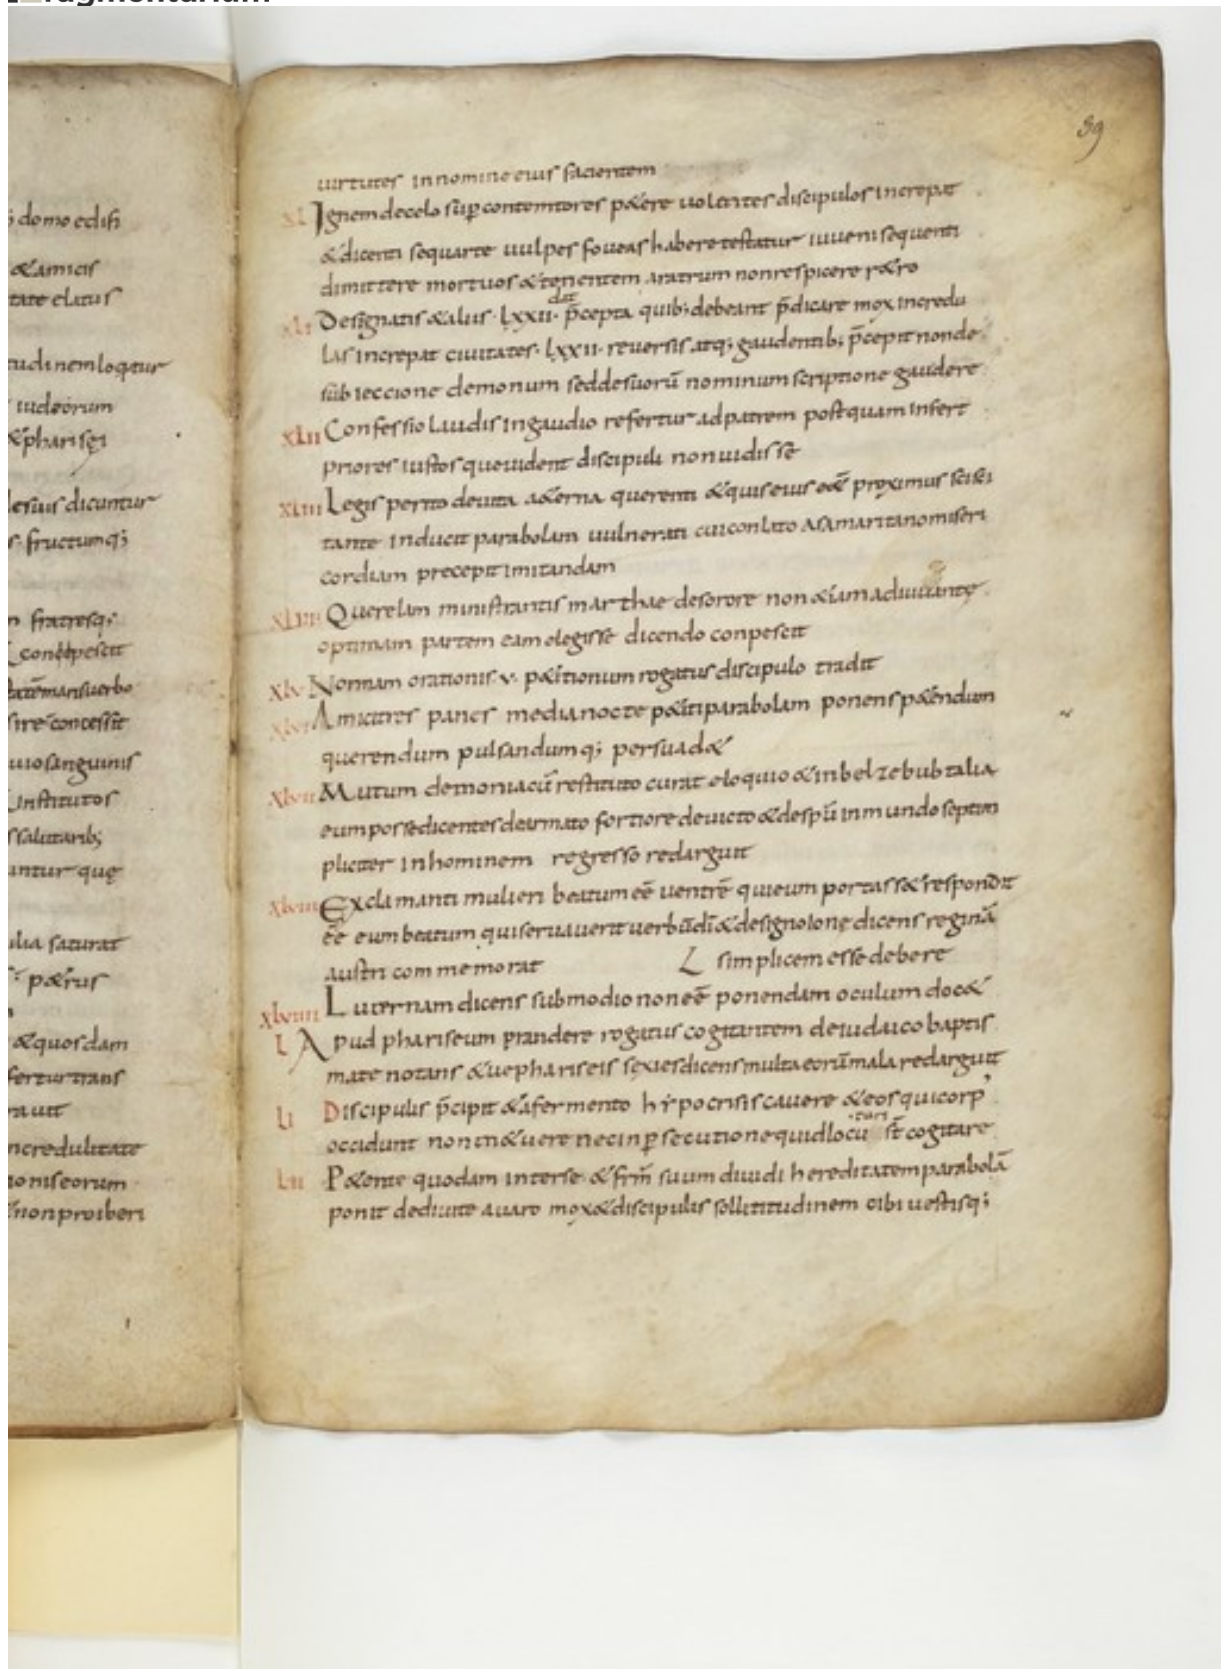 ragmentarium
39
; domo edifi
& amicis
tate elatus
tudinem loqitur
iudeorum
& pharisęi
lesus dicuntur
s fructumq;
n fratresq;
conpescit
tatem mansuerbo
sire concessit
uio sanguinis
Institutos
s salutarib;
untur quę
ulia saturat
p&rus
& quosdam
fertur trans
rauit
ncredulitate
ionis eorum
non proiberi
uirtutes in nomine eius facientem
XL Ignem de celo sup contemtores p&ere uolentes discipulos increpat
& dicenti sequar te uulpes foueas habere testatur iuueni sequenti
dimittere mortuos & tenentem aratrum non respicere r&ro
dat
XLI Designatis & aliis · LXXII · p̄cepta quib; debeant p̄dicare mox incredu
las increpat ciuitates · LXXII · reuersis atq; gaudentib; p̄cepit non de
subieccione demonum sed de suorū nominum scriptione gaudere
XLII Confessio laudis in gaudio refertur ad patrem postquam infert
priores iustos que uident discipuli non uidisse
XLIII Legis perito de uita a&erna querenti & quis eius e&̄ proximus scisci
tante inducit parabolam uulnerati cui conlato a samaritano miseri
cordiam precepit imitandam
XLIIII Querelam ministrantis marthae de sorore non &iam adiuuante
optimam partem eam elegisse dicendo conpescit
XLV Normam orationis · v · p&itionum rogatus discipulo tradit
XLVI Amici tres panes media nocte p&iti parabolam ponens p&endum
querendum pulsandumq; persuad&
XLVII Mutum demoniacū restituto curat eloquio & in belzebub talia
eum posse dicentes de armato fortiore deuicto & de spū inmundo septim
pliciter in hominem regresso redarguit
XLVIII Exclamanti mulieri beatum eē uentrē qui eum portass& respondit
eē eum beatum qui seruauerit uerbū dī & de signo ionę dicens reginā
austri commemorat simplicem esse debere
XLVIIII Lucernam dicens sub modio non eē ponendam oculum doc&
L Apud phariseum prandere rogatus cogitantem de iudaico baptis
mate notans & ue phariseis sexies dicens multa eorū mala redarguit
LI Discipulis p̄cipit & a fermento hypocrisis cauere & eos qui corp'
occidunt non m&uere nec in psecutione quid locu turi st̄ cogitare
LII P&ente quodam inter se & frm̄ suum diuidi hereditatem parabolā
ponit de diuite auaro mox & discipulis sollititudinem cibi uestisq;